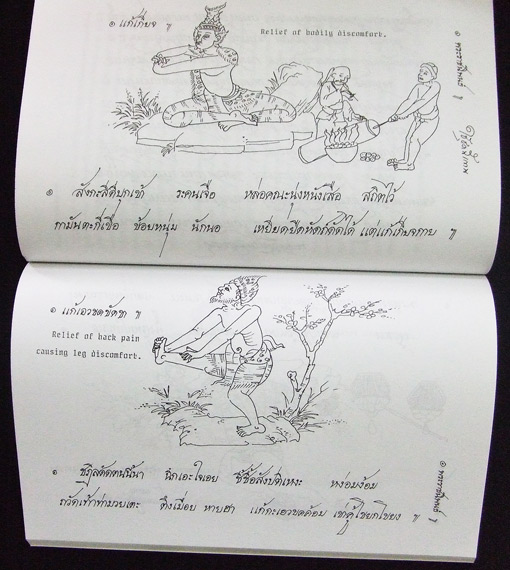 ๏ แก้เกียจ ๚
Relief of bodily discomfort.
๏ สังกะสีดีบุกเข้า ระคนเจือ หล่อคณะนุ่งหนังเสือ สถิตไว้
กามันตะกี่เชื้อ ช้อยหนุ่ม นักนอ เหยียดยืดหัตถ์ดัดได้ แต่แก้เกียจกาย ๚
๏ แก้เอวขดขัดขา ๚
Relief of back pain
causing leg discomfort.
๏ ชฎิลดัดตนนี้น่า นึกเอะใจเอย ชี้ชื่อสังปติเหงะ หง่อมง้อม
ถวัดเท้าท่ามวยเตะ ตึงเมื่อย หายฮา แก้กะเอวขดค้อม เข่าคู้โขยกโขยง ๚